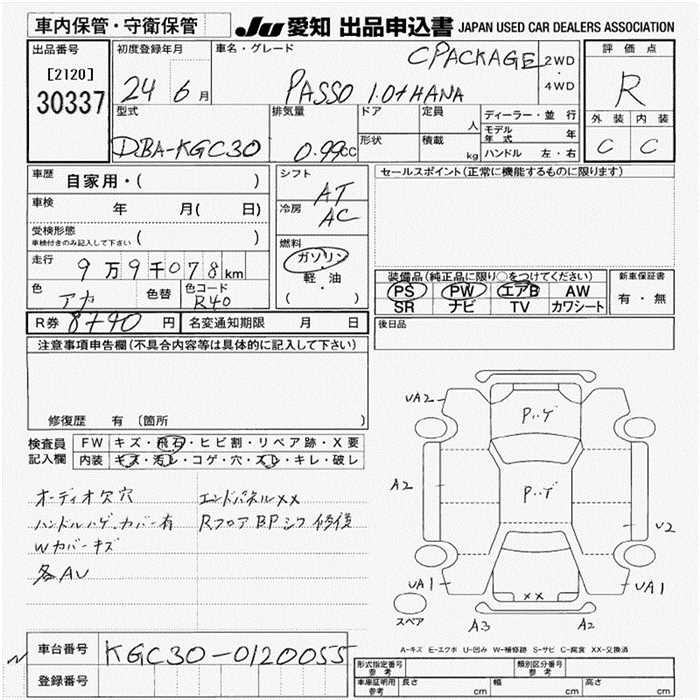 車内保管・守衛保管 JU 愛知 出品申込書 JAPAN USED CAR DEALERS ASSOCIATION
出品番号 初度登録年月 車名・グレード 評価点
[2120] 30337
24 6月
PASSO 1.0+HANA CPACKAGE
2WD
・
4WD
R
外装 内装
C C
型式 排気量 ドア 定員 人 ディーラー・並行
DBA-KGC30 0.99cc
形状 積載 kg
モデル年式 年
ハンドル 左・右
車歴 自家用・( )
車検 年 月( 日)
受検形態 ( )
車検付きのみ記入して下さい
走行 9万9千078km
色 アカ 色替 色コード R40
シフト AT
冷房 AC
燃料
ガソリン
・
軽・油
( )
セールスポイント(正常に機能するものに限ります)
装備品(純正品に限り○をつけてください) 新車保証書
PS PW エアB AW
SR ナビ TV カワシート
有・無
R券 8740円 名変通知期限 月 日
後日品
注意事項申告欄(不具合内容等は具体的に記入して下さい)
修復歴 有 (箇所 )
検査員記入欄
FW キズ・飛石・ヒビ割・リペア跡・X要
内装 キズ・汚レ・コゲ・穴・スレ・キレ・破レ
オーディオ欠穴 エンドパネルXX
ハンドルハゲ、カバー有 Rフロア BP シワ 修復
Wカバーキズ
各AU
UA2
P.ハゲ
A2
P.ハゲ
U2
UA1
XX
UA1
スペア
A3
A2
A-キズ E-エクボ U-凹み W-補修跡 S-サビ C-腐食 XX-交換済
車台番号 KGC30-0120055
登録番号
形式指定番号 参考 類別区分番号 参考
車庫証明用 参考 長さ cm 幅 cm 高さ cm